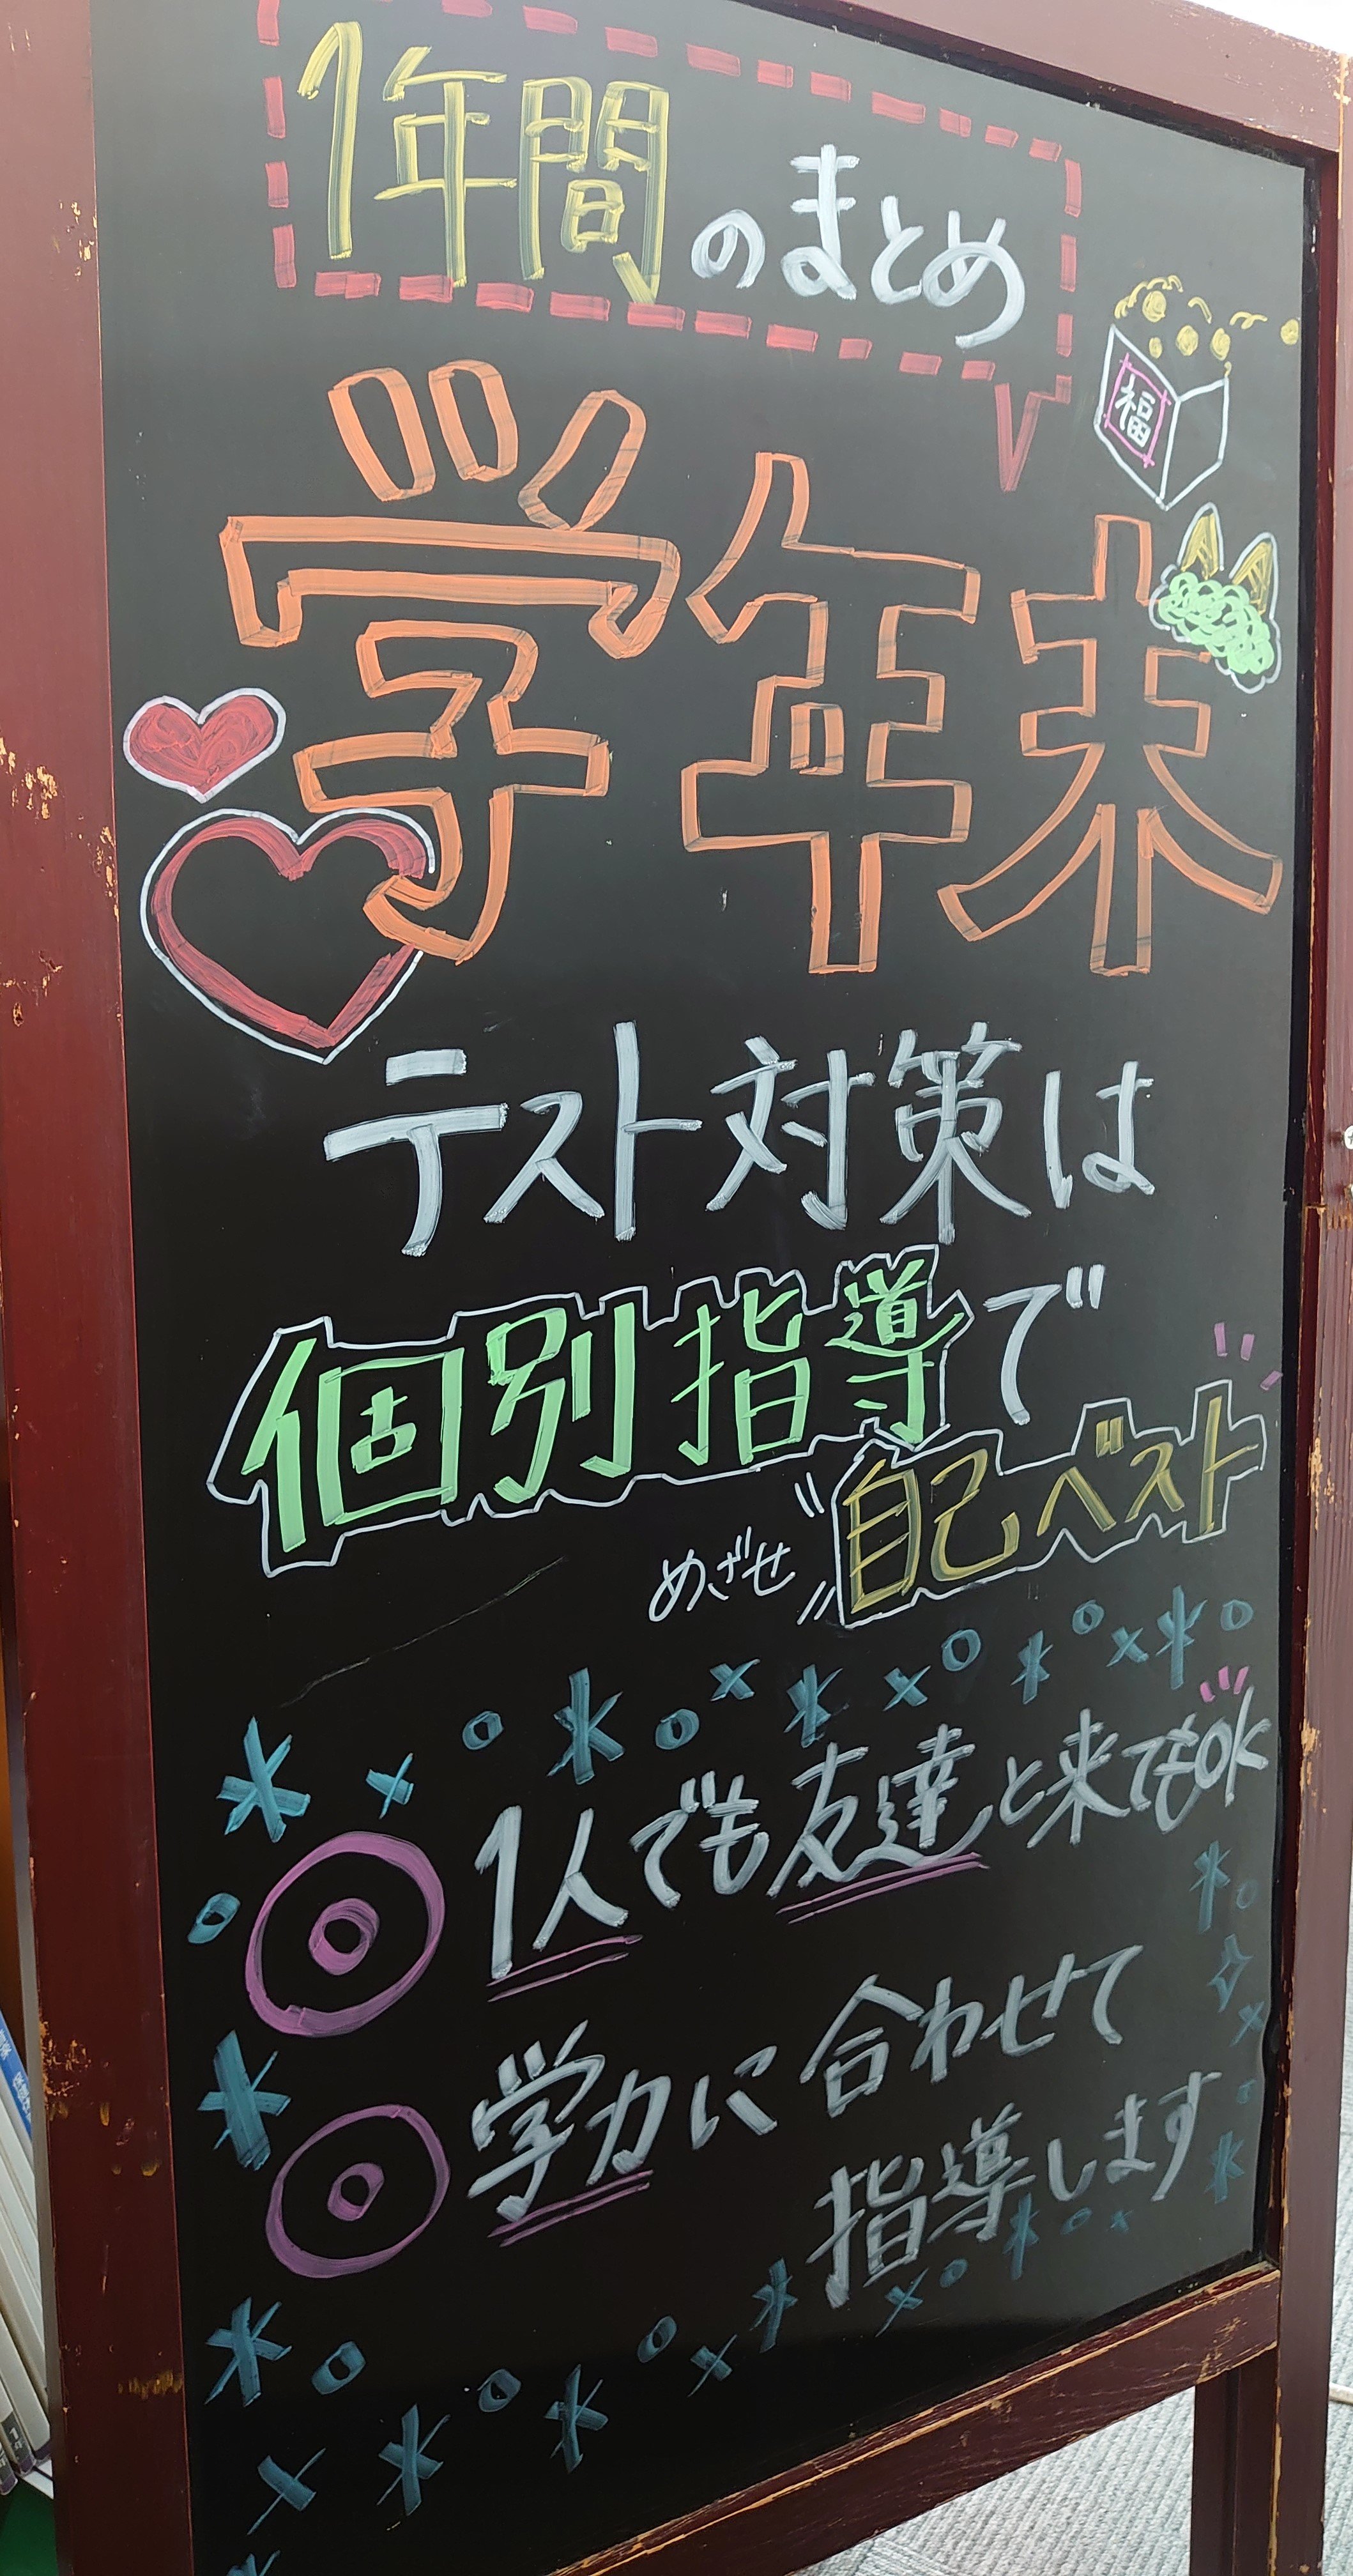 1年間のまとめ
福
学年末
テスト対策は
個別指導で
めざせ自己ベスト
1人でも友達と来てもOK
学力に合わせて
指導します